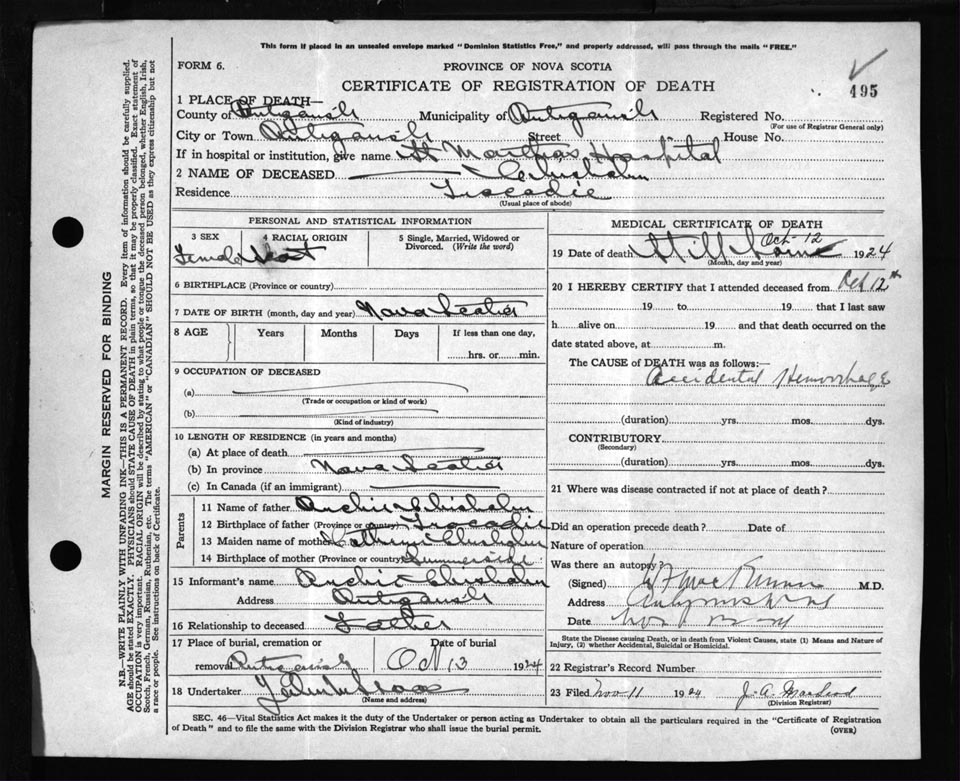 This form if placed in an unsealed envelope marked "Dominion Statistics Free," and properly addressed, will pass through the mails "FREE."
FORM 6.
PROVINCE OF NOVA SCOTIA
CERTIFICATE OF REGISTRATION OF DEATH
495
1 PLACE OF DEATH—
County of Antigonish Municipality of Antigonish Registered No.
(For use of Registrar General only)
City or Town Antigonish Street House No.
If in hospital or institution, give name St Marthas Hospital
2 NAME OF DECEASED Chisholm
Residence Tracadie
(Usual place of abode)
PERSONAL AND STATISTICAL INFORMATION
3 SEX 4 RACIAL ORIGIN 5 Single, Married, Widowed or Divorced. (Write the word)
Female Scot
6 BIRTHPLACE (Province or country)
7 DATE OF BIRTH (month, day and year) Nova Scotia
8 AGE Years Months Days If less than one day,
hrs. or min.
9 OCCUPATION OF DECEASED
(a)
(Trade or occupation or kind of work)
(b)
(Kind of industry)
10 LENGTH OF RESIDENCE (in years and months)
(a) At place of death
(b) In province Nova Scotia
(c) In Canada (if an immigrant)
Parents
11 Name of father Archie Chisholm
12 Birthplace of father (Province or country) Tracadie
13 Maiden name of mother Catherine Chisholm
14 Birthplace of mother (Province or country) Summerside
15 Informant's name Archie Chisholm
Address Antigonish
16 Relationship to deceased Father
17 Place of burial, cremation or removal Antigonish
Date of burial
Oct 13 1924
18 Undertaker
(Name and address)
MEDICAL CERTIFICATE OF DEATH
Oct-12
19 Date of death Still borne 1924
(Month, day and year)
20 I HEREBY CERTIFY that I attended deceased from Oct 12th
19 to 19 that I last saw
h alive on 19 and that death occurred on the
date stated above, at m.
The CAUSE of DEATH was as follows:—
Accidental Hemorrhage
(duration) yrs. mos. dys.
CONTRIBUTORY
(Secondary)
(duration) yrs. mos. dys.
21 Where was disease contracted if not at place of death?
Did an operation precede death? Date of
Nature of operation
Was there an autopsy?
(Signed) M.D.
Address
Date
State the Disease causing Death, or in death from Violent Causes, state (1) Means and Nature of Injury, (2) whether Accidental, Suicidal or Homicidal.
22 Registrar's Record Number
23 Filed Nov 11 1924 J. A. MacLeod
(Division Registrar)
SEC. 46—Vital Statistics Act makes it the duty of the Undertaker or person acting as Undertaker to obtain all the particulars required in the "Certificate of Registration
of Death" and to file the same with the Division Registrar who shall issue the burial permit.
(OVER)
MARGIN RESERVED FOR BINDING
N.B.—WRITE PLAINLY WITH UNFADING INK—THIS IS A PERMANENT RECORD. Every item of information should be carefully supplied.
AGE should be stated EXACTLY. PHYSICIANS should STATE CAUSE OF DEATH in plain terms, so that it may be properly classified. Exact statement of
OCCUPATION is very important. RACIAL ORIGIN will be described by stating to what people or tongue the deceased person belonged, whether English, Irish,
Scotch, French, German, Russian, Ruthenian, etc. The terms "AMERICAN" or "CANADIAN" SHOULD NOT BE USED as they express citizenship but not
a race or people. See instructions on back of Certificate.